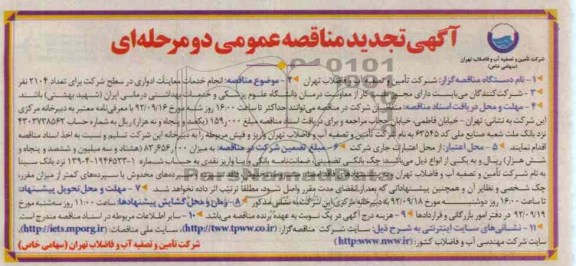 آگهی تجدید مناقصه عمومی دو مرحله‌ای
شرکت تأمین و تصفیه آب و فاضلاب تهران
(سهامی خاص)
۱- نام دستگاه مناقصه‌گزار: شرکت تأمین و تصفیه آب و فاضلاب تهران ۲- موضوع مناقصه: انجام خدمات معاینات ادواری در سطح شرکت برای تعداد ۲۱۰۴ نفر
۳- شرکت‌کنندگان می‌بایست دارای مجوز کار از معاونت درمان دانشگاه علوم پزشکی و خدمات بهداشتی درمانی ایران (شهید بهشتی) باشند.
۴- مهلت و محل دریافت اسناد مناقصه: متقاضیان شرکت در مناقصه می‌توانند حداکثر تا ساعت ۱۶:۰۰ روز شنبه مورخ ۹۲/۰۹/۱۶ با معرفی‌نامه معتبر به دبیرخانه مرکزی
این شرکت به نشانی تهران - خیابان فاطمی، خیابان حجاب مراجعه و برای دریافت اسناد مناقصه مبلغ ۱۵۹,۰۰۰ ریال (یکصد و پنجاه و نه هزار) ریال به شماره حساب ۴۳۰۳۷۳۸۵۶۳
نزد بانک ملت شعبه صنایع ملی کد ۶۳۵۴۵ به نام شرکت تأمین و تصفیه آب و فاضلاب تهران واریز و فیش مربوطه را به دبیرخانه این شرکت تسلیم و نسبت به اخذ اسناد مناقصه
اقدام نمایند. ۵- محل اعتبار: از محل اعتبارات جاری شرکت ۶- مبلغ تضمین شرکت در مناقصه: به میزان ۸۳,۶۵۶,۰۰۰ (هشتاد و سه میلیون و ششصد و پنجاه و
شش هزار) ریال و به یکی از انواع ذیل می‌باشد: چک بانکی تضمینی، ضمانت‌نامه بانکی و یا واریز نقدی به حساب شماره ۱۳۹-۴-۱۹۴۶۵۳۳-۱ نزد بانک سینا
به نام شرکت تأمین و تصفیه آب و فاضلاب تهران سپرده‌های مخدوش یا سپرده‌های کمتر از میزان مقرر،
چک شخصی و نظایر آن و همچنین پیشنهاداتی که بعد از انقضای مدت مقرر واصل شود، مطلقا ترتیب اثر داده نخواهد شد. ۷- مهلت و محل تحویل پیشنهاد:
تا ساعت ۱۶:۰۰ روز دوشنبه مورخ ۹۲/۰۹/۱۸ به دبیرخانه مرکزی این شرکت به نشانی مذکور ۸- زمان و محل گشایش پیشنهادها: ساعت ۱۱:۰۰ روز سه‌شنبه مورخ
۹۲/۰۹/۱۹ در دفتر امور بازرگانی و قراردادها ۹- هزینه درج آگهی در یک نوبت به عهده برنده مناقصه می‌باشد ۱۰- سایر اطلاعات مربوطه در اسناد مناقصه مندرج است.
۱۱- نشانی‌های سایت اینترنتی به شرح ذیل: سایت شرکت مناقصه‌گزار: (http://tww.tpww.co.ir)، سایت ملی مناقصات: (http://iets.mporg.ir)،
سایت شرکت مهندسی آب و فاضلاب کشور: (http:www.nww.ir)
شرکت تأمین و تصفیه آب و فاضلاب تهران (سهامی خاص)
ParsNamadData